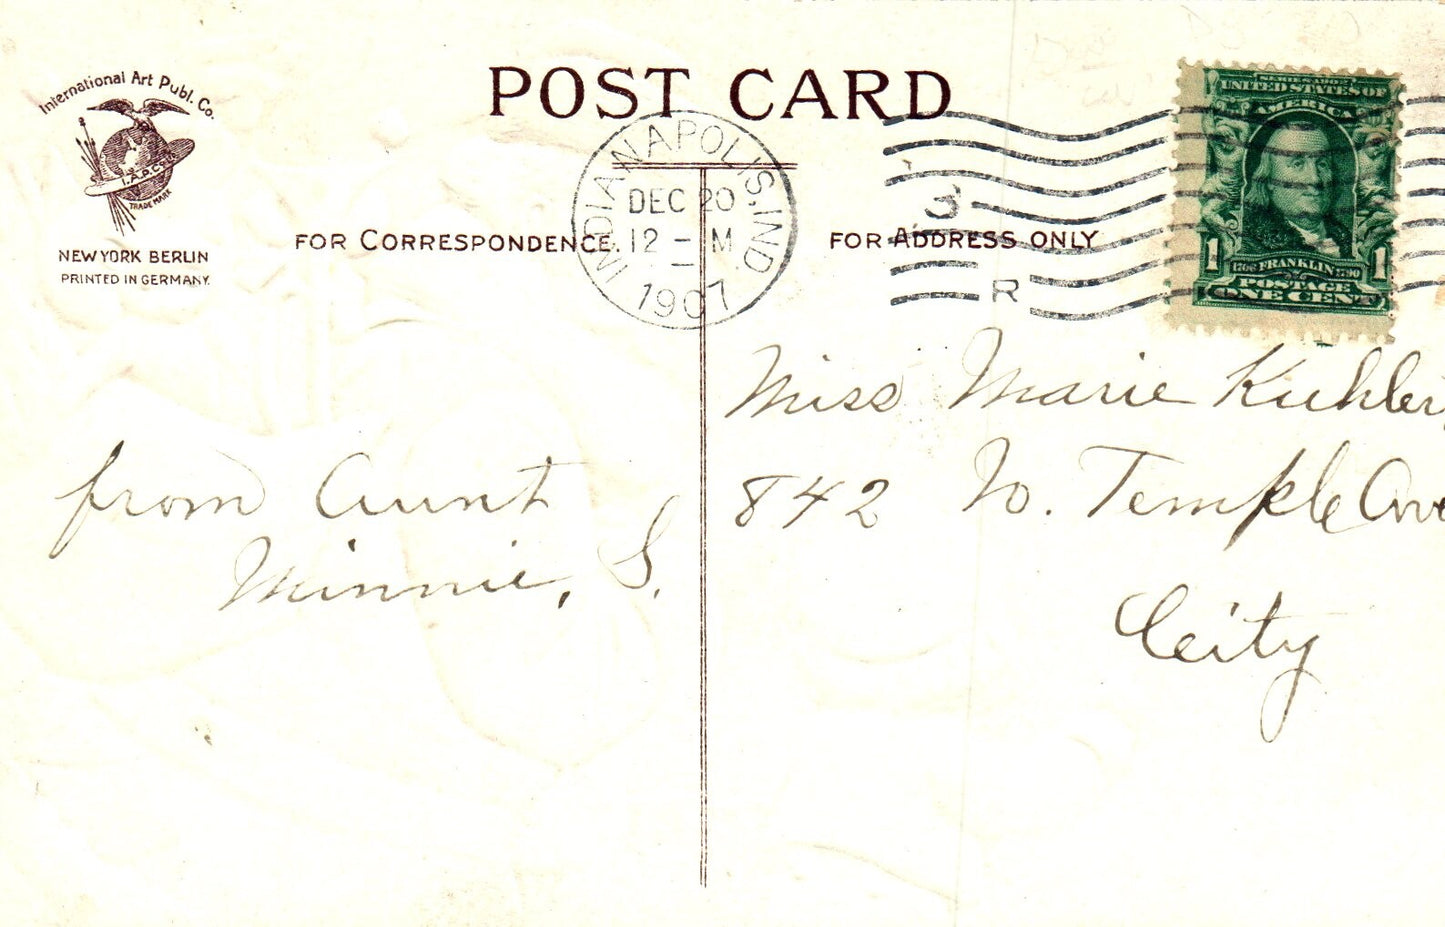 International Art Publ. Co.
I.A.P.C.
TRADE MARK
NEW YORK BERLIN
PRINTED IN GERMANY.
POST CARD
INDIANAPOLIS, IND.
DEC 20
12 - M
1907
FOR CORRESPONDENCE.
FOR ADDRESS ONLY
3
R
SERIES 1902
UNITED STATES OF
AMERICA
1 1
1706 FRANKLIN 1790
POSTAGE
ONE CENT
from Aunt
Minnie, S.
Miss Marie Kuhler,
842 No. Temple Ave
City